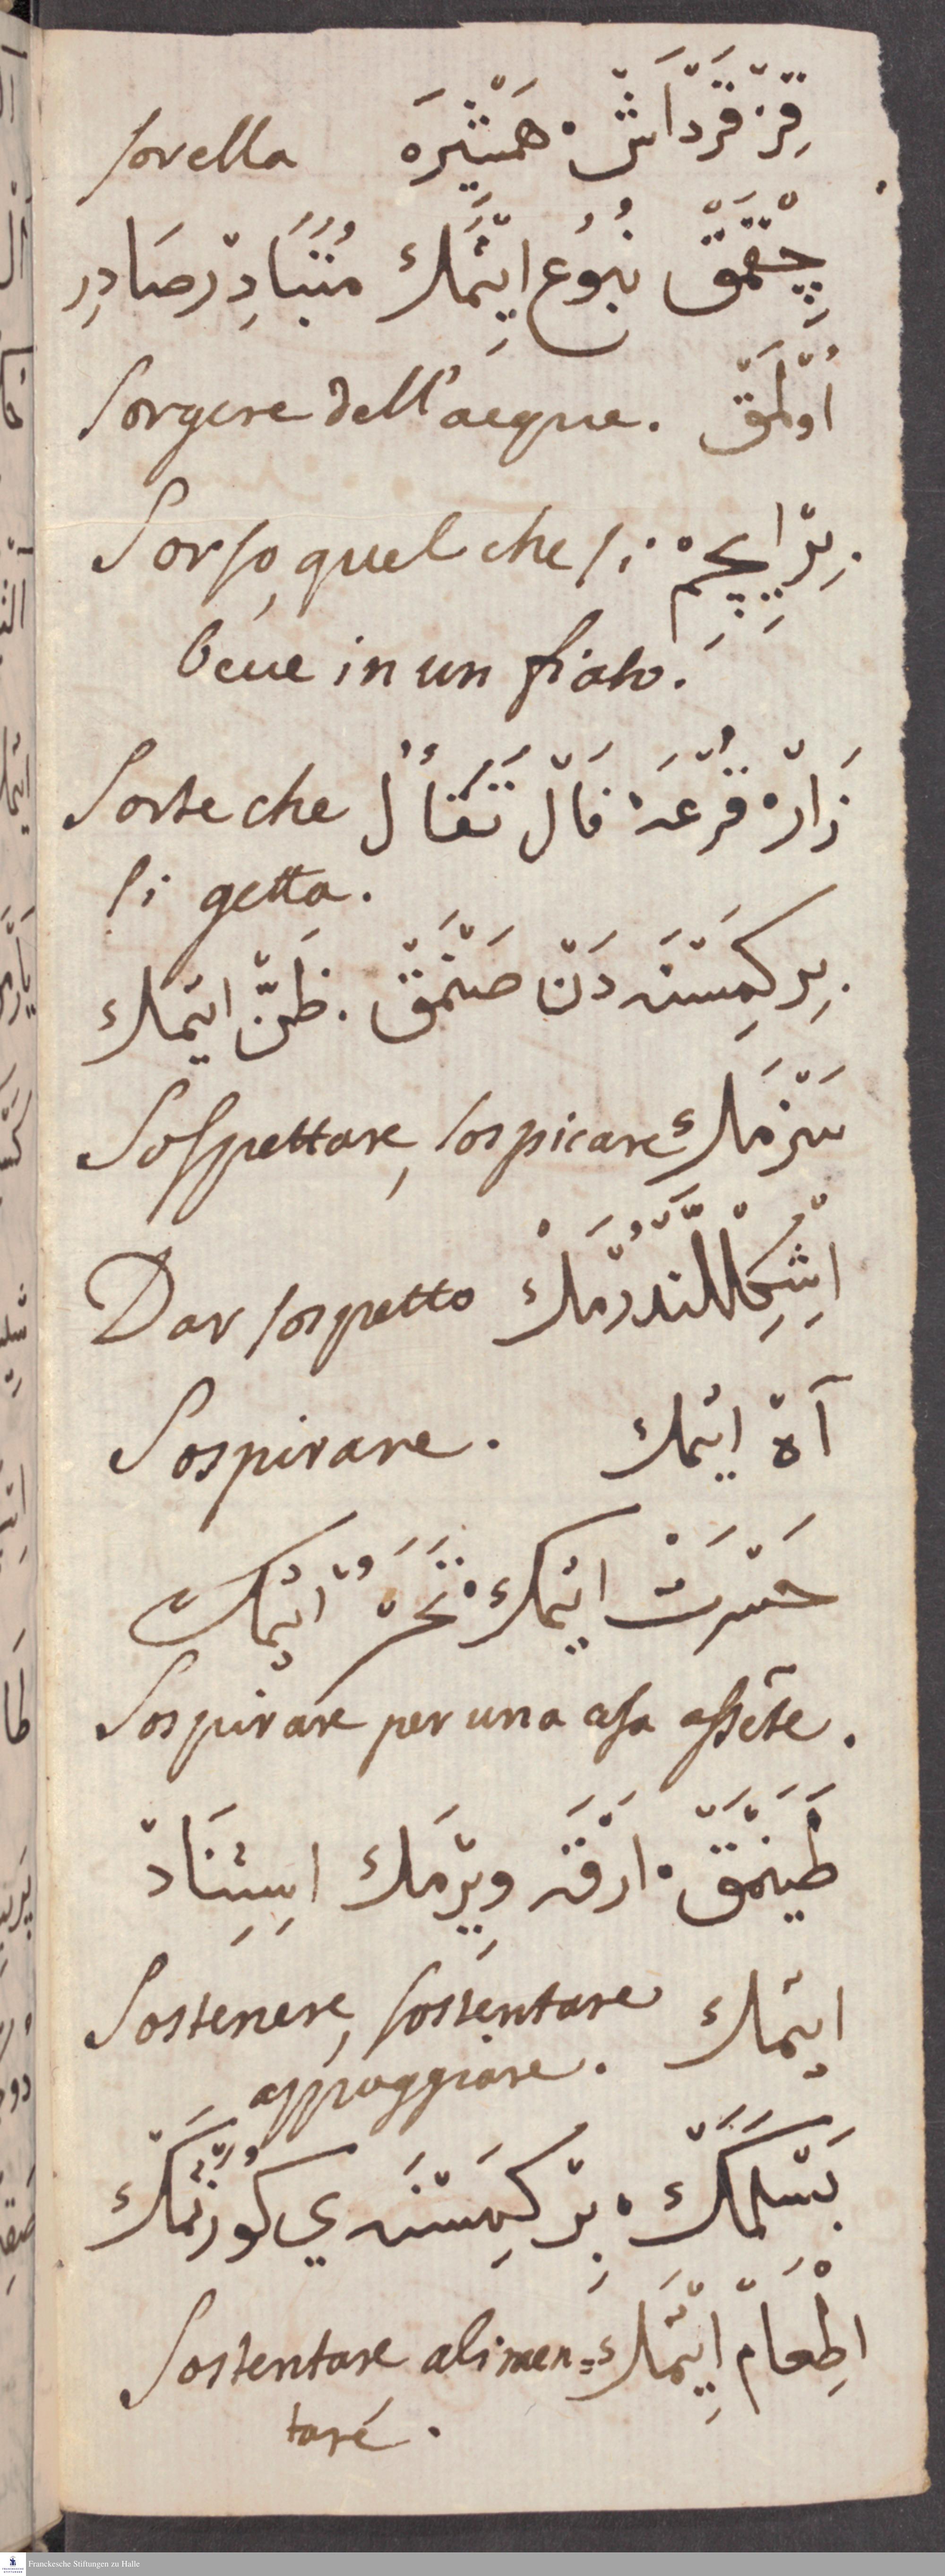 sorella قِزْ قَرْدَاشْ · هَمْشِيْرَه
چِقْمَقْ نُبُوع اِيتْمَك مُتَبَادِرْ صَادِر
Sorgere dell'acque. اُوْلمَقْ
Sorso, quel che si بِرْ اِيچِمْ
beue in un fiato.
Sorte che زَارْ قُرْعَه فَالْ تَفَأُلْ
si getta.
بِر كِمسَنَه دَنْ صَنْمَقْ . ظَنّ ايتمك
Sospettare, sospicare سَزْمَك
Dar sospetto اِشْكِللَنْدُرْمَكْ
Sospirare. آهْ ايتمك
حَسْرَتْ ايتمك ايتمك
Sospirare per una cosa assẽte.
طَيَنْمَقْ · ارْقَه وِيرْمَك اِسْتِنَادْ
Sostenere, sostentare ايتمك
appoggiare.
بَسْلَمَكْ · بِرْ كِمسَنَه يي كُوزَتْمَكْ
Sostentare alimen= اِطْعَامْ اِيتْمَك
tare.
Franckesche Stiftungen zu Halle